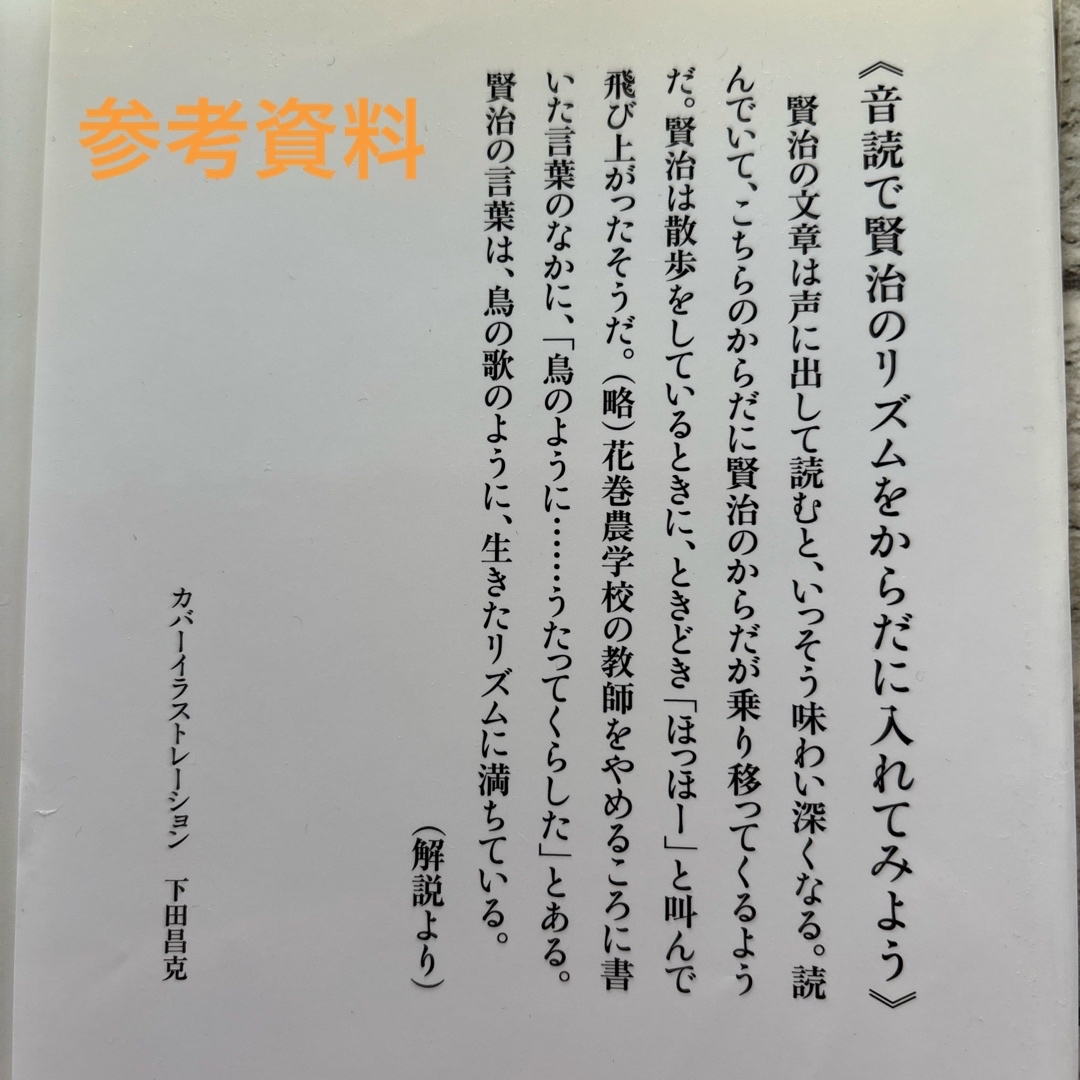 参考資料
《音読で賢治のリズムをからだに入れてみよう》
賢治の文章は声に出して読むと、いっそう味わい深くなる。読
んでいて、こちらのからだに賢治のからだが乗り移ってくるよう
だ。賢治は散歩をしているときに、ときどき「ほっほー」と叫んで
飛び上がったそうだ。(略)花巻農学校の教師をやめるころに書
いた言葉のなかに、「鳥のように……うたってくらした」とある。
賢治の言葉は、鳥の歌のように、生きたリズムに満ちている。
(解説より)
カバーイラストレーション 下田昌克